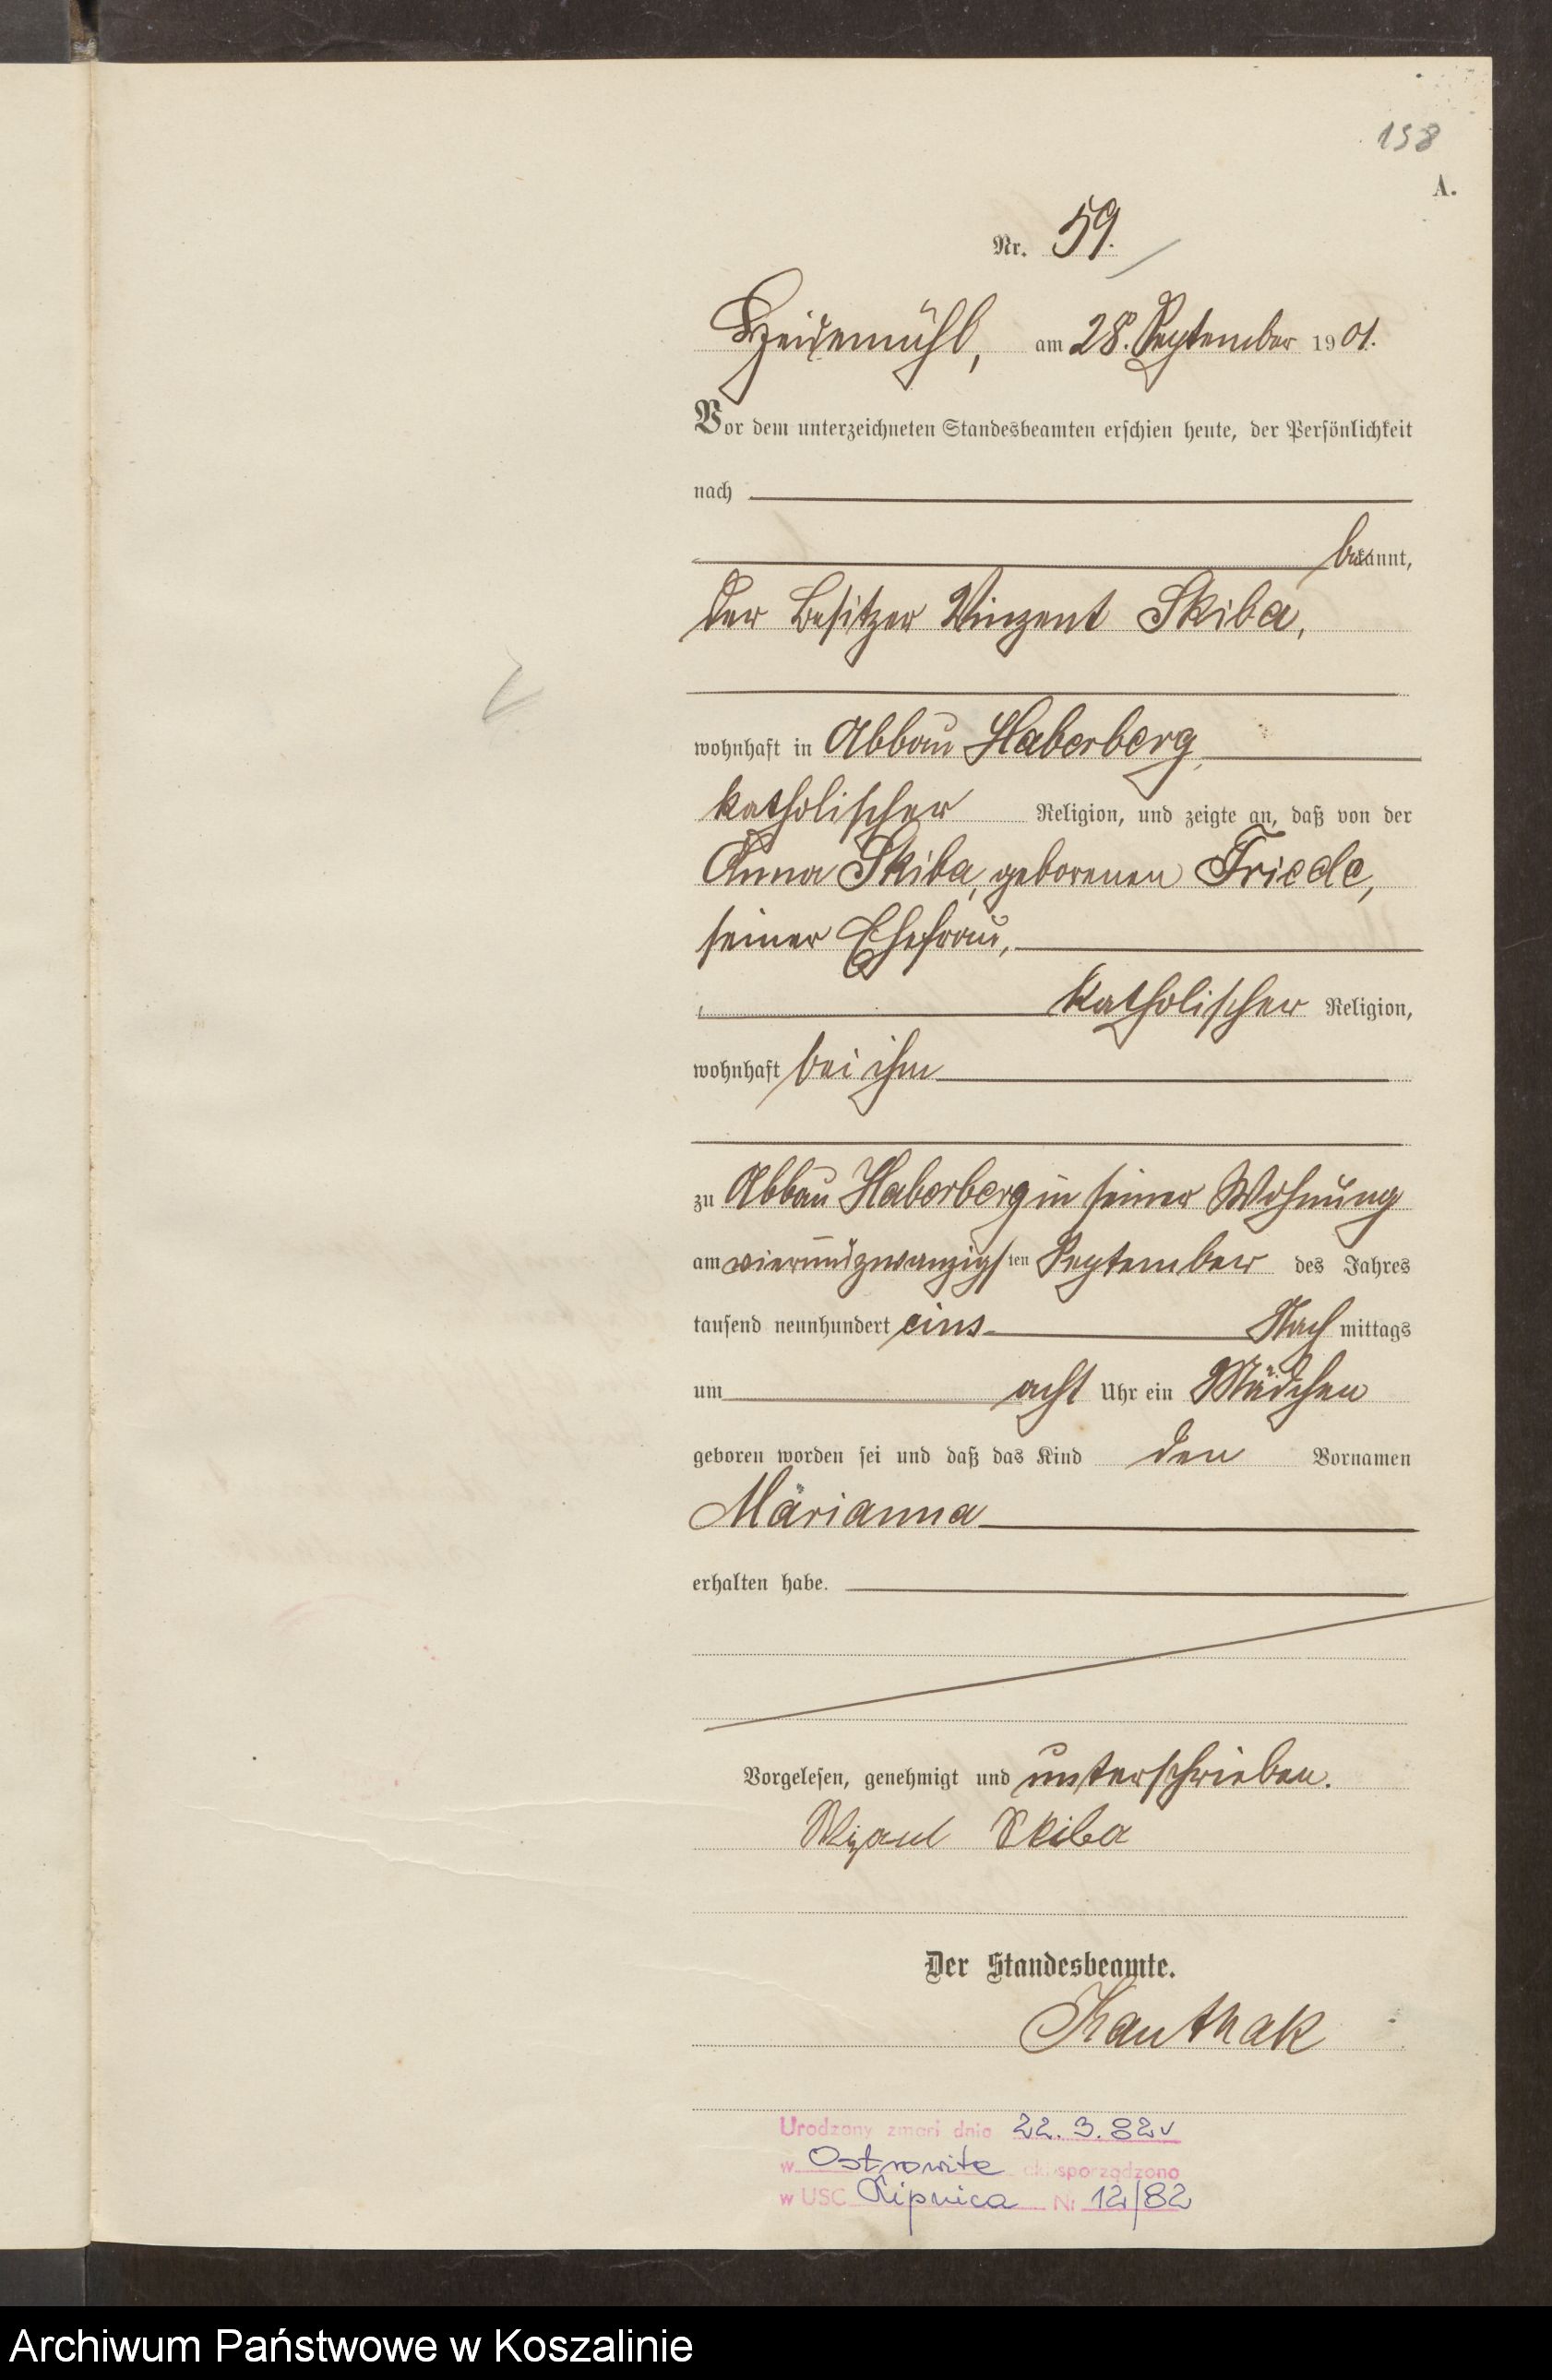 158
A.
Nr. 59.
Heidemühl, am 28. September 1901.
Vor dem unterzeichneten Standesbeamten erschien heute, der Persönlichkeit
nach
bekannt,
der Besitzer Vinzent Skiba,
wohnhaft in Abbau Haberberg,
katholischer Religion, und zeigte an, daß von der
Anna Skiba, geborenen Friede,
seiner Ehefrau,
katholischer Religion,
wohnhaft bei ihm
zu Abbau Haberberg in seiner Wohnung
am vierundzwanzigsten September des Jahres
tausend neunhundert eins Nachmittags
um acht Uhr ein Mädchen
geboren worden sei und daß das Kind den Vornamen
Marianna
erhalten habe.
Vorgelesen, genehmigt und unterschrieben.
Skiba
Der Standesbeamte.
Kauthak
Urodzony zmarł dnia 22.3.82
w Ostrowite akt sporządzono
w USC Lipnica Nr 12/82
Archiwum Państwowe w Koszalinie